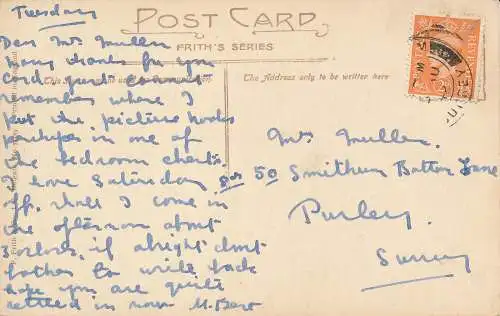 Tuesday
POST CARD
FRITH'S SERIES
The Address only to be written here
Dear Mrs Mullen
Many thanks for you
card, just cannot
remember where I
put the picture hooks
perhaps in one of
the bedroom chests.
I have Saturday
off, shall I come in
the afternoon about
3 oclock, if alright dont
bother to write back
hope you are quite
settled in now
Mrs Mullen
50 Smitham Bottom Lane
Purley.
Surrey
REVENUE